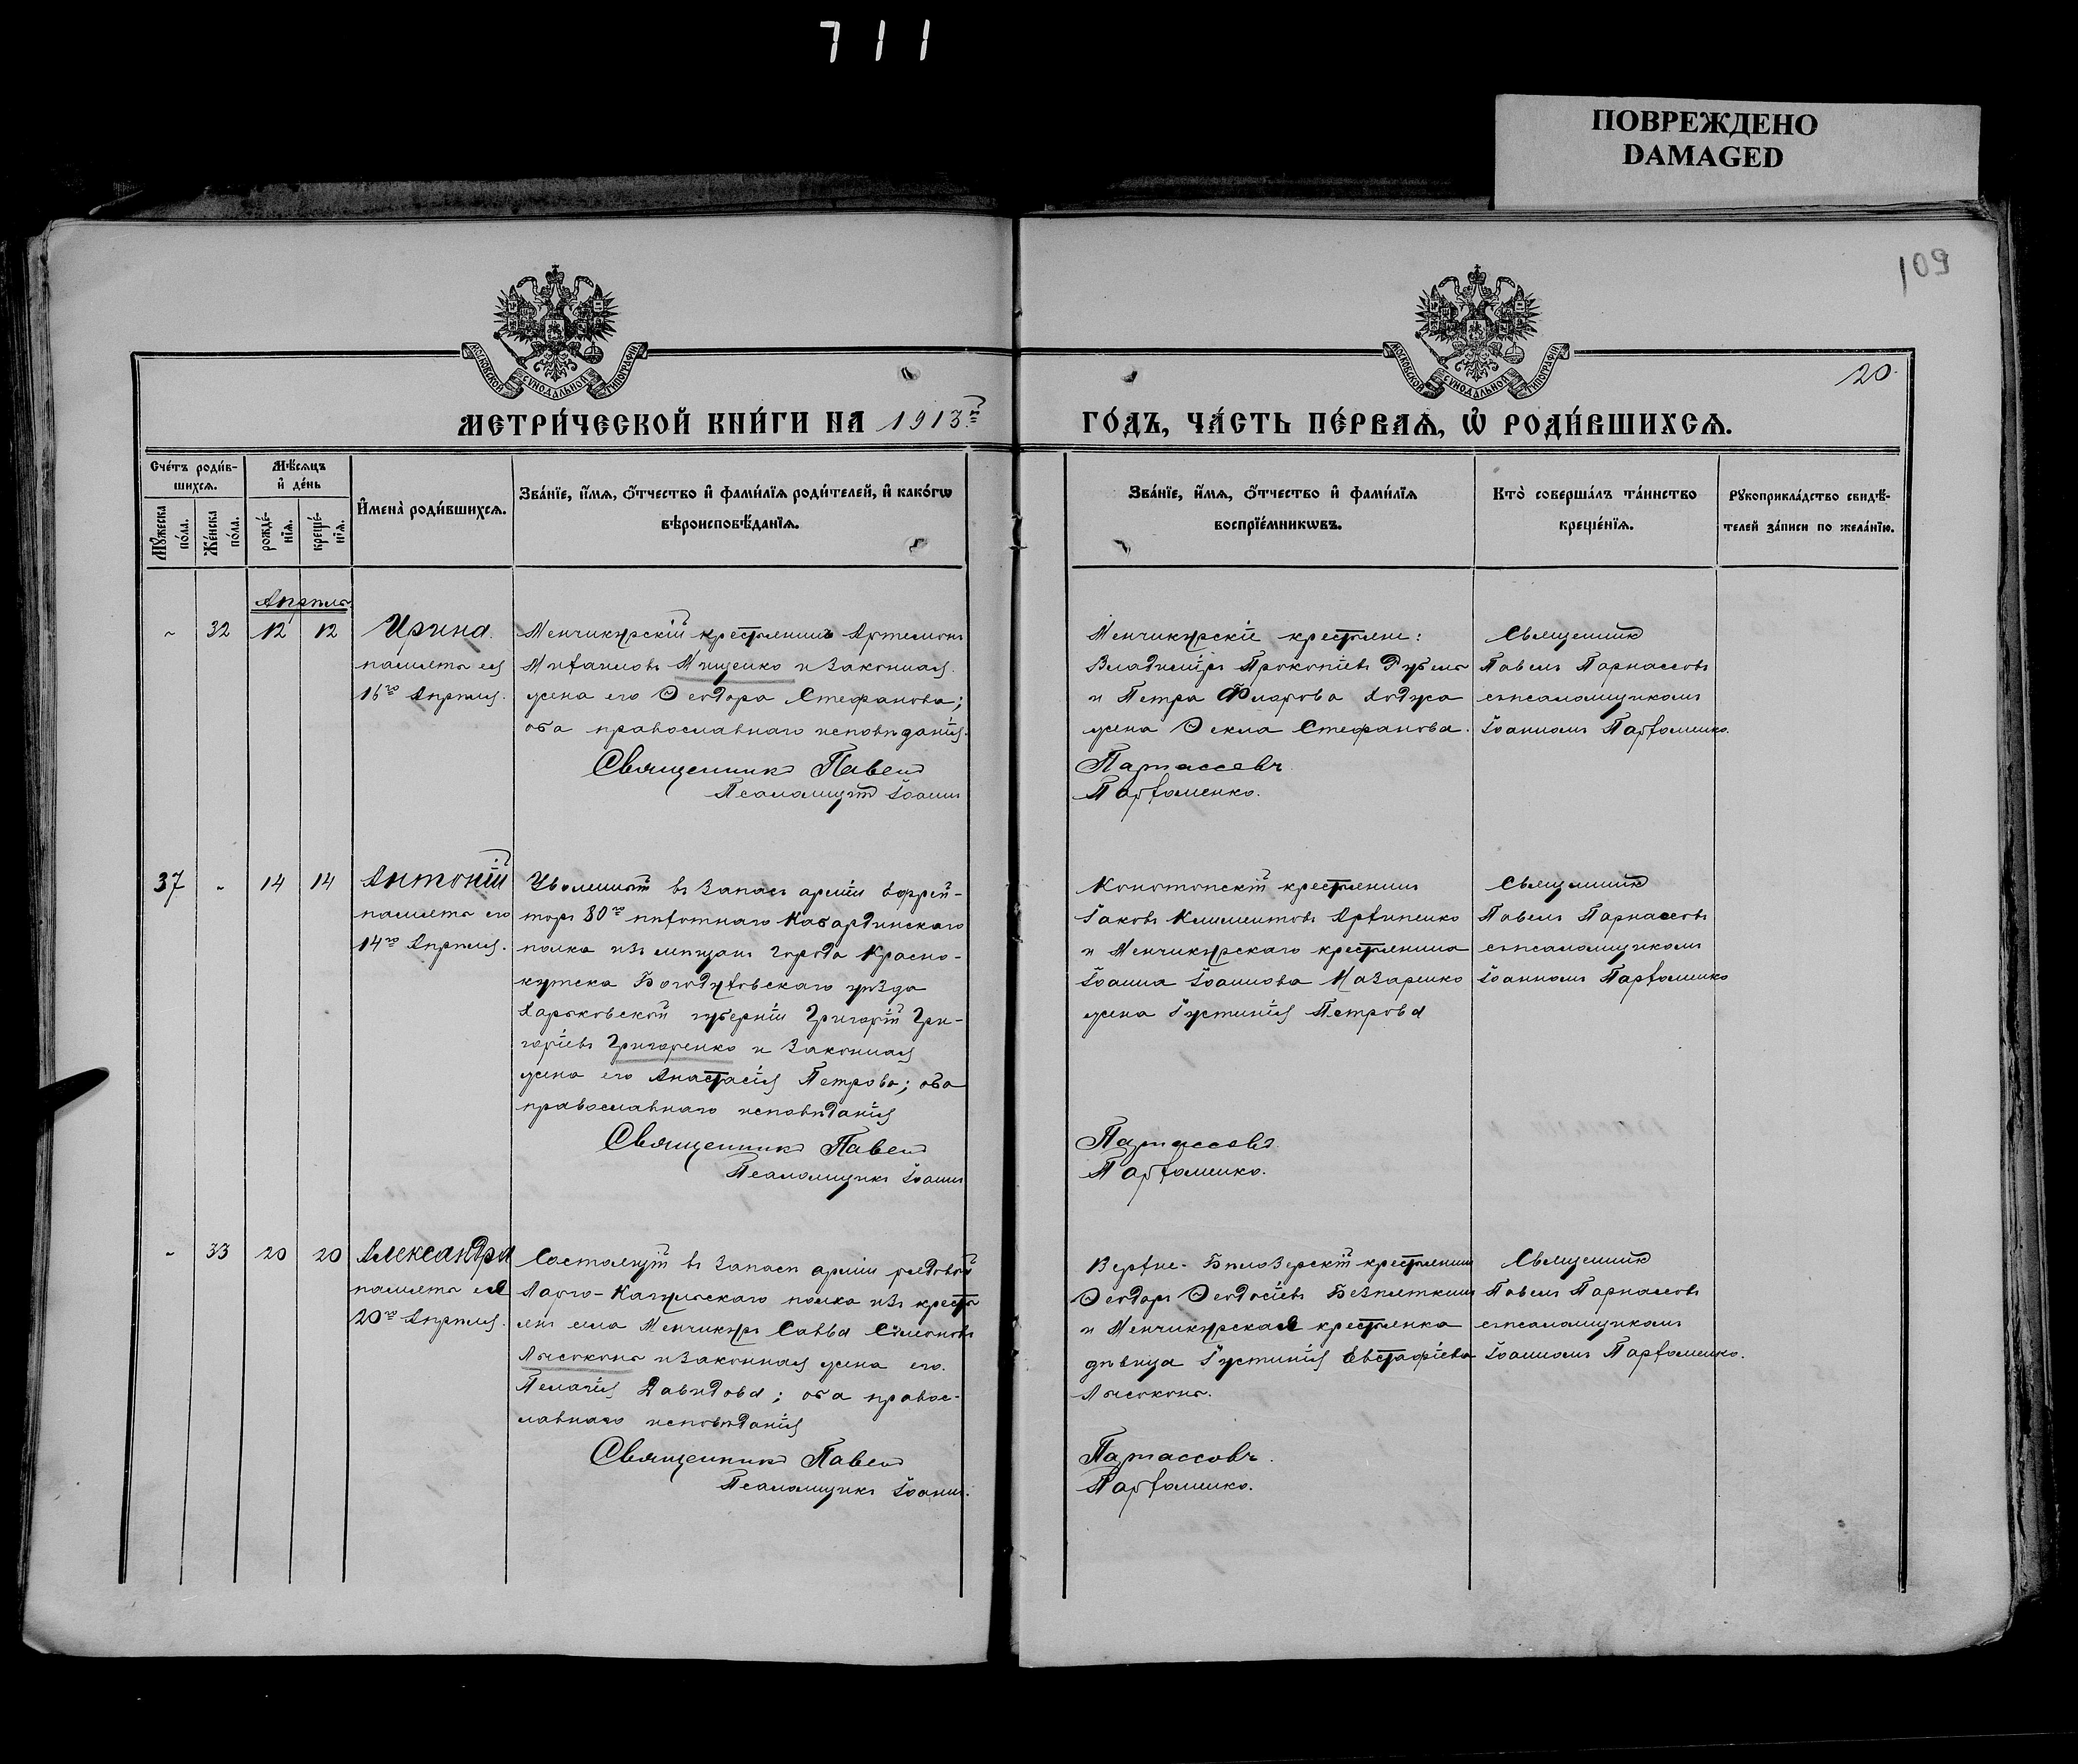 711
ПОВРЕЖДЕНО
DAMAGED
109
МОСКОВСКОЙ СѴНОДАЛЬНОЙ ТИПОГРАФІИ
МОСКОВСКОЙ СѴНОДАЛЬНОЙ ТИПОГРАФІИ
20.
МЕТРИ́ЧЕСКОЙ КНИ́ГИ НА 1913й
ГО́ДЪ, ЧА́СТЬ ПЕ́РВАѦ, Ѡ҆ РОДИ́ВШИХСѦ.
Сче́тъ роди́в-
шихсѧ.
Мѣ́сѧцъ
и҆ де́нь
Мꙋ́жеска
по́ла.
Же́нска
по́ла.
рожде́-
нїѧ.
креще́-
нїѧ.
И҆мена̀ роди́вшихсѧ.
Зва́нїе, и҆́мѧ, ѻ҆́тчество и҆ фами́лїѧ роди́телей, и҆ како́гѡ
вѣроисповѣ́данїѧ.
Зва́нїе, и҆́мѧ, ѻ҆́тчество и҆ фами́лїѧ
воспрїе́мникѡвъ.
Кто̀ соверша́лъ та́инство
креще́нїѧ.
Рꙋкоприкла́дство свидѣ́-
телей за́писи по жела́нїю.
Апрѣль
~ 32 12 12 Ирина.
память ея
16го Апрѣля.
Менчикурскій крестьянинъ Артемонъ
Михаиловъ Мищенко и законная
жена его Ѳеодора Стефанова;
оба православнаго исповѣданія.
Священникъ Павелъ
Псаломщикъ Іоаннъ
Менчикурскіе крестьяне:
Владиміръ Прокопіевъ
и Петра Флорова Ходуса
жена Ѳекла Стефанова.
Парнассовъ
Парфоменко.
Священникъ
Павелъ Парнассовъ
съ псаломщикомъ
Іоанномъ Парфоменко.
37 ~ 14 14 Антоній
память его
14го Апрѣля.
Уволенный въ запасъ арміи ефрей-
торъ 80го пѣхотнаго Кабардинскаго
полка изъ мѣщанъ города Красно-
кутска Богодуховскаго уѣзда
Харьковской губерніи Григорій Гри-
горіевъ Григоренко и законная
жена его Анастасія Петрова; оба
православнаго исповѣданія
Священникъ Павелъ
Псаломщикъ Іоаннъ
Конотопскій крестьянинъ
Іаковъ Климентовъ Архипенко
и Менчикурскаго крестьянина
Іоанна Іоаннова Назаренко
жена Іустинія Петрова
Парнассовъ
Парфоменко.
Священникъ
Павелъ Парнассовъ
съ псаломщикомъ
Іоанномъ Парфоменко
~ 33 20 20 Александра
память ея
20го Апрѣля.
Состоящій въ запасѣ арміи рядовой
Ларго-Кагульскаго полка изъ кресть
янъ села Менчикуръ Савва Симеоновъ
Лысоконь и законная жена его
Пелагія Давидова; оба правос-
лавнаго исповѣданія
Священникъ Павелъ
Псаломщикъ Іоаннъ.
Верхне-Бѣлозерскій крестьянинъ
Ѳеодоръ Ѳеодосіевъ Безпяткинъ
и Менчикурская крестьянка
дѣвица Іустинія Евстафіева
Лысоконь.
Парнассовъ.
Парфоменко.
Священникъ
Павелъ Парнассовъ
съ псаломщикомъ
Іоанномъ Парфоменко.